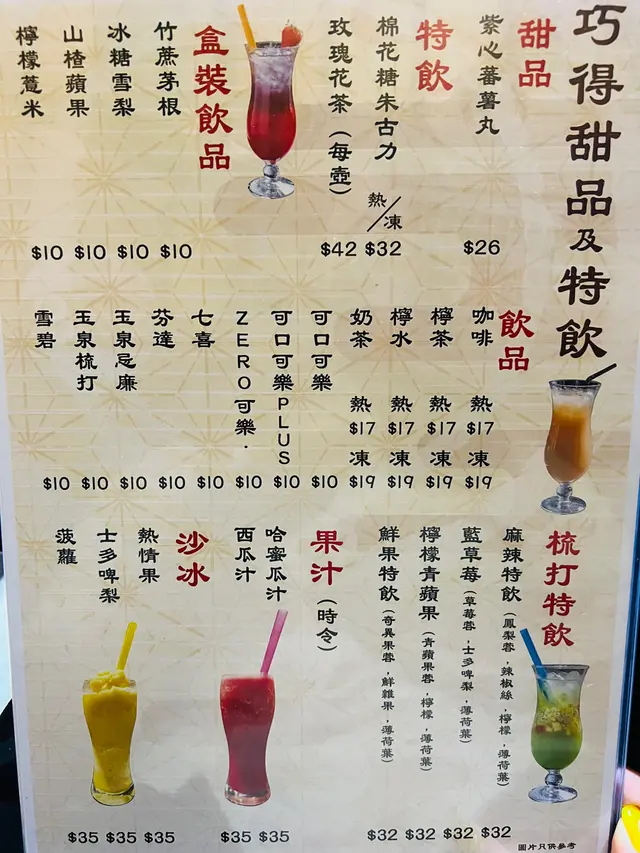 巧得甜品及特飲
甜品
紫心蕃薯丸 $26
特飲
棉花糖朱古力 熱/凍 $32
玫瑰花茶(每壺) $42
盒裝飲品
竹蔗茅根 $10
冰糖雪梨 $10
山楂蘋果 $10
檸檬薏米 $10
飲品
咖啡 熱 $17 凍 $19
檸茶 熱 $17 凍 $19
檸水 熱 $17 凍 $19
奶茶 熱 $17 凍 $19
可口可樂 $10
可口可樂PLUS $10
ZERO可樂. $10
七喜 $10
芬達 $10
玉泉忌廉 $10
玉泉梳打 $10
雪碧 $10
梳打特飲
麻辣特飲(鳳梨蓉,辣椒絲,檸檬,薄荷葉) $32
藍草莓(草莓蓉,士多啤梨,薄荷葉) $32
檸檬青蘋果(青蘋果蓉,檸檬,薄荷葉) $32
鮮果特飲(奇異果蓉,鮮雜果,薄荷葉) $32
果汁(時令)
哈蜜瓜汁 $35
西瓜汁 $35
沙冰
熱情果 $35
士多啤梨 $35
菠蘿 $35
圖片只供參考